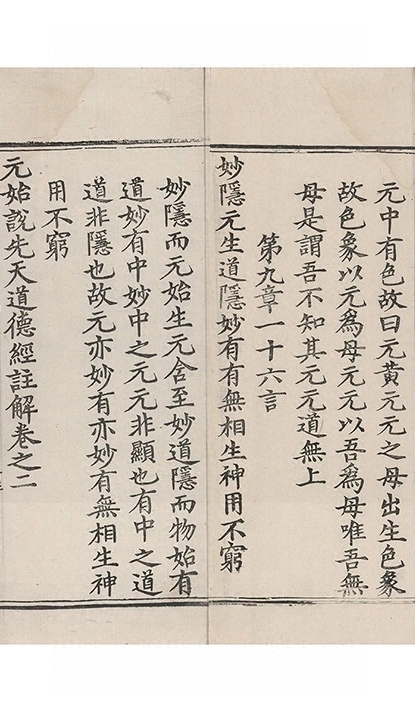 元中有色故曰元黃元元之母出生色象
故色象以元為母元元以吾為母唯吾無
母是謂吾不知其元元道無上
第九章一十六言
妙隱元生道隱妙有有無相生神用不窮
妙隱而元始生元含至妙道隱而物始有
道妙有中妙中之元元非顯也有中之道
道非隱也故元亦妙有亦妙有無相生神
用不窮
元始說先天道德經註解卷之二